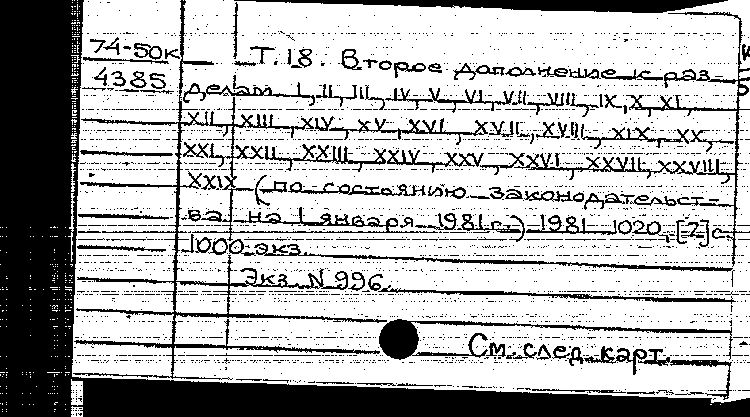 74-50к Т.18. Второе дополнение к раз-
4385 делам I, II, III, IV, V, VI, VII, VIII, IX, X, XI,
XII, XIII, XIV, XV, XVI, XVII, XVIII, XIX, XX,
XXI, XXII, XXIII, XXIV, XXV, XXVI, XXVII, XXVIII,
XXIX (по состоянию законодательст-
ва на 1 января 1981г.) 1981 1020, [2]с.
1000 экз.
Экз. N 996.
См. след. карт.